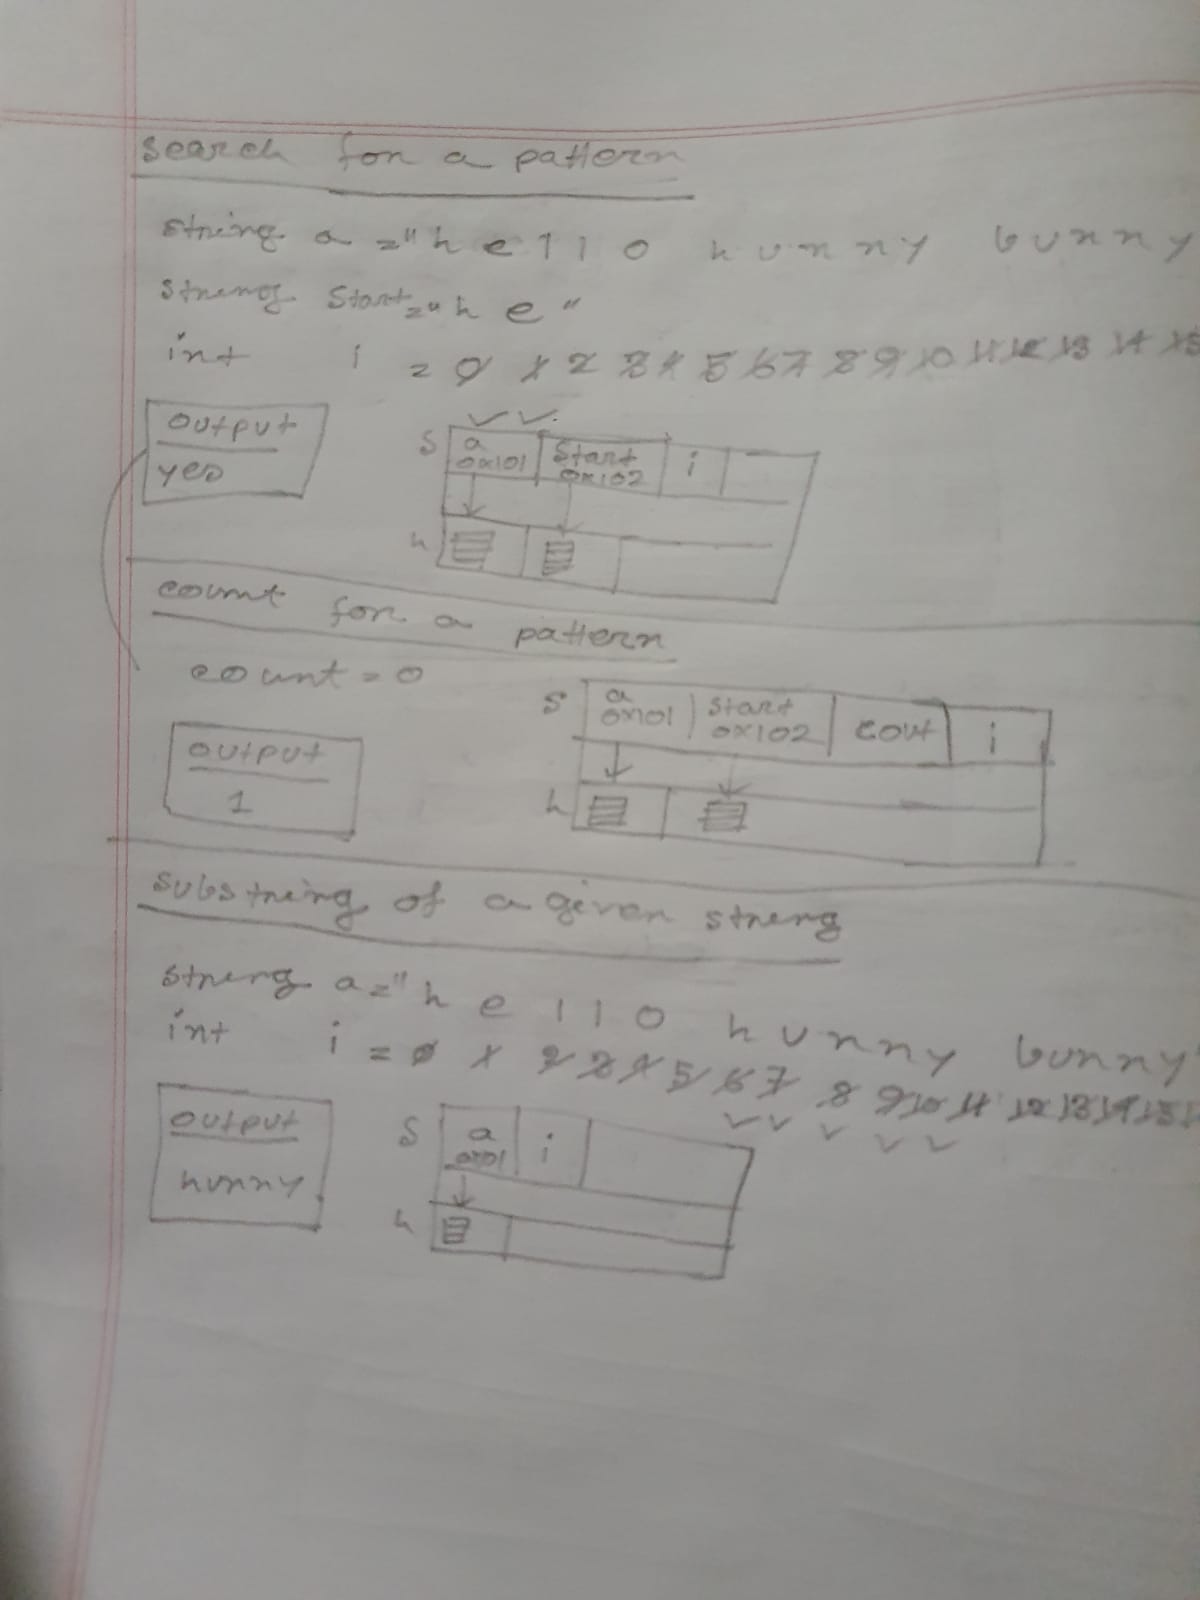 Search for a pattern
string a = "h e l l o h u n n y b u n n y
string Start = "h e "
int i = 0 1 2 3 4 5 6 7 8 9 10 11 12 13 14 15
output
yes
S a 0x101 Start 0x102 i
h
count for a pattern
count = 0
S a 0x101 Start 0x102 cout i
output
1
h
Substring of a given string
string a = "h e l l o h u n n y b u n n y"
int i = 0 1 2 3 4 5 6 7 8 9 10 11 12 13 14 15
output
hunny
S a 0x101 i
h